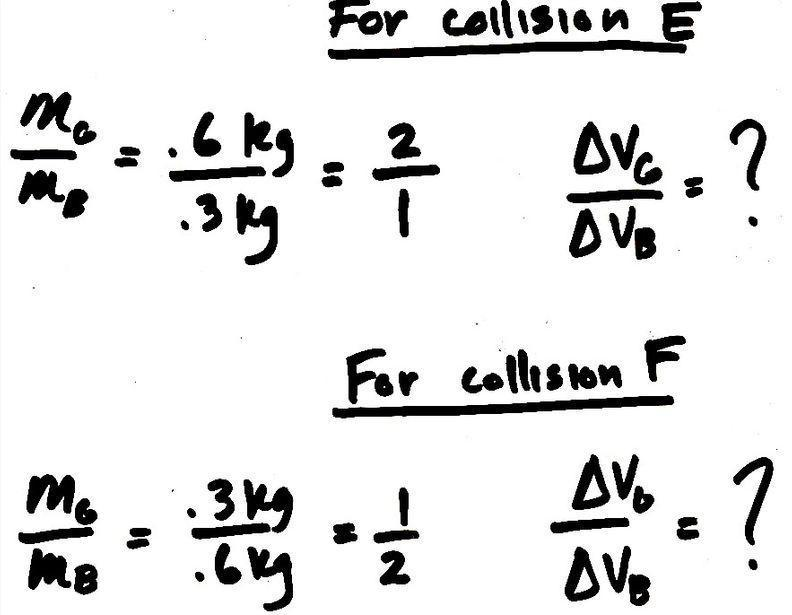 For collision E
m_G/m_B = .6 kg/.3 kg = 2/1 ΔV_G/ΔV_B = ?
For collision F
m_G/m_B = .3 kg/.6 kg = 1/2 ΔV_G/ΔV_B = ?